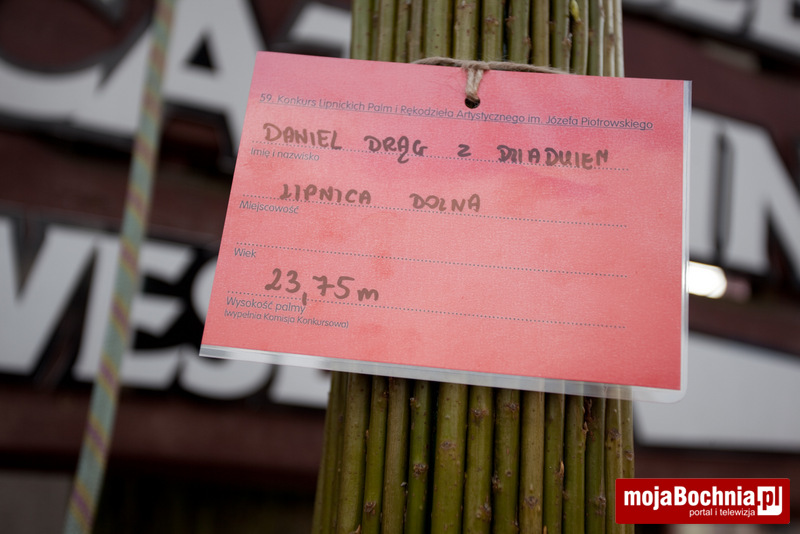 59. Konkurs Lipnickich Palm i Rękodzieła Artystycznego im. Józefa Piotrowskiego
DANIEL DRĄG Z DZIADKIEM
Imię i nazwisko
LIPNICA DOLNA
Miejscowość
Wiek
23,75 m
Wysokość palmy
(wypełnia Komisja Konkursowa)
mojaBochnia.pl
portal i telewizja